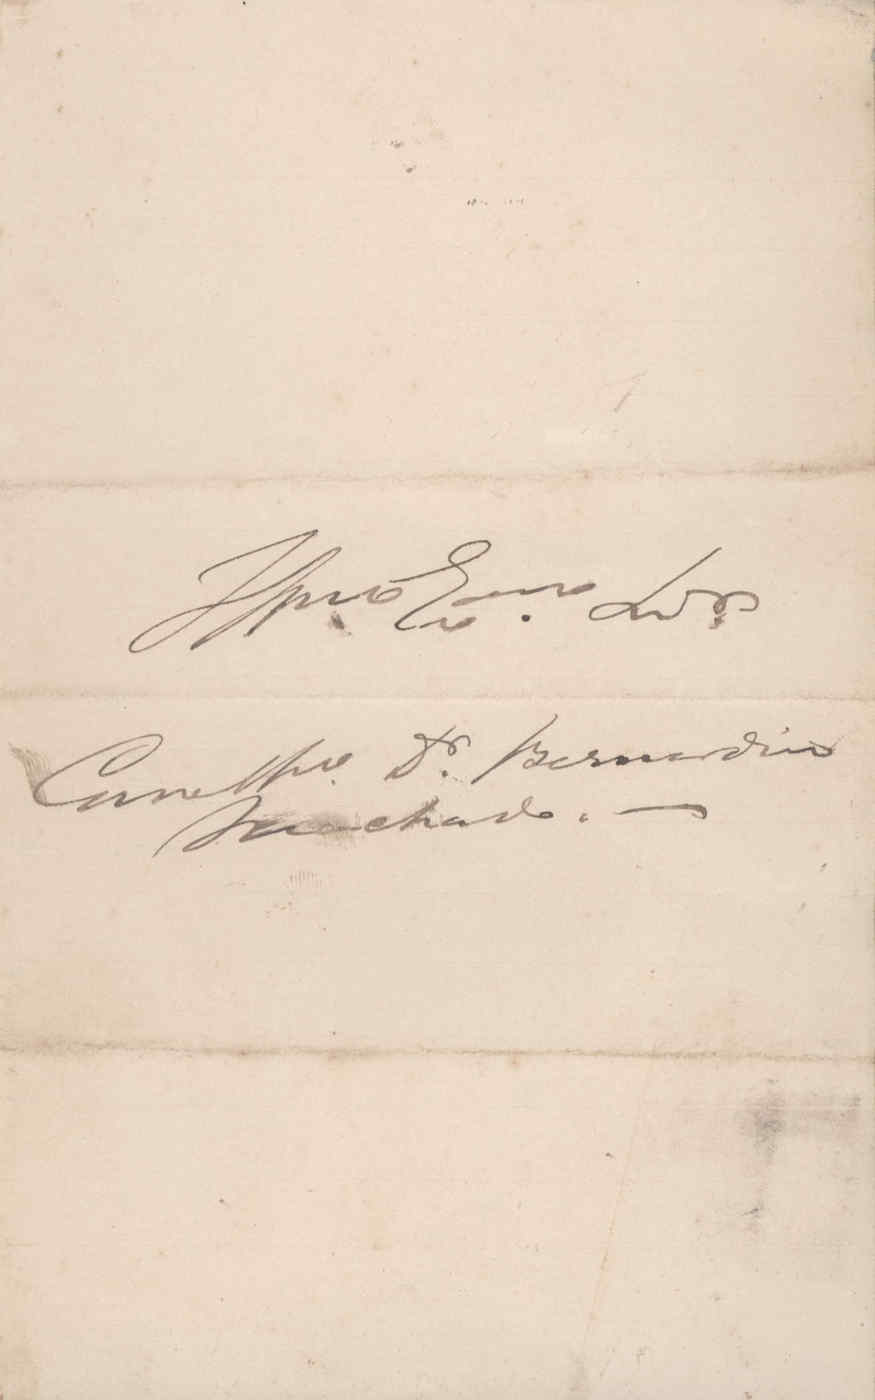 Illmo. Exmo. Snr.
Conselhro. Dr. Bernardino
Machado. —